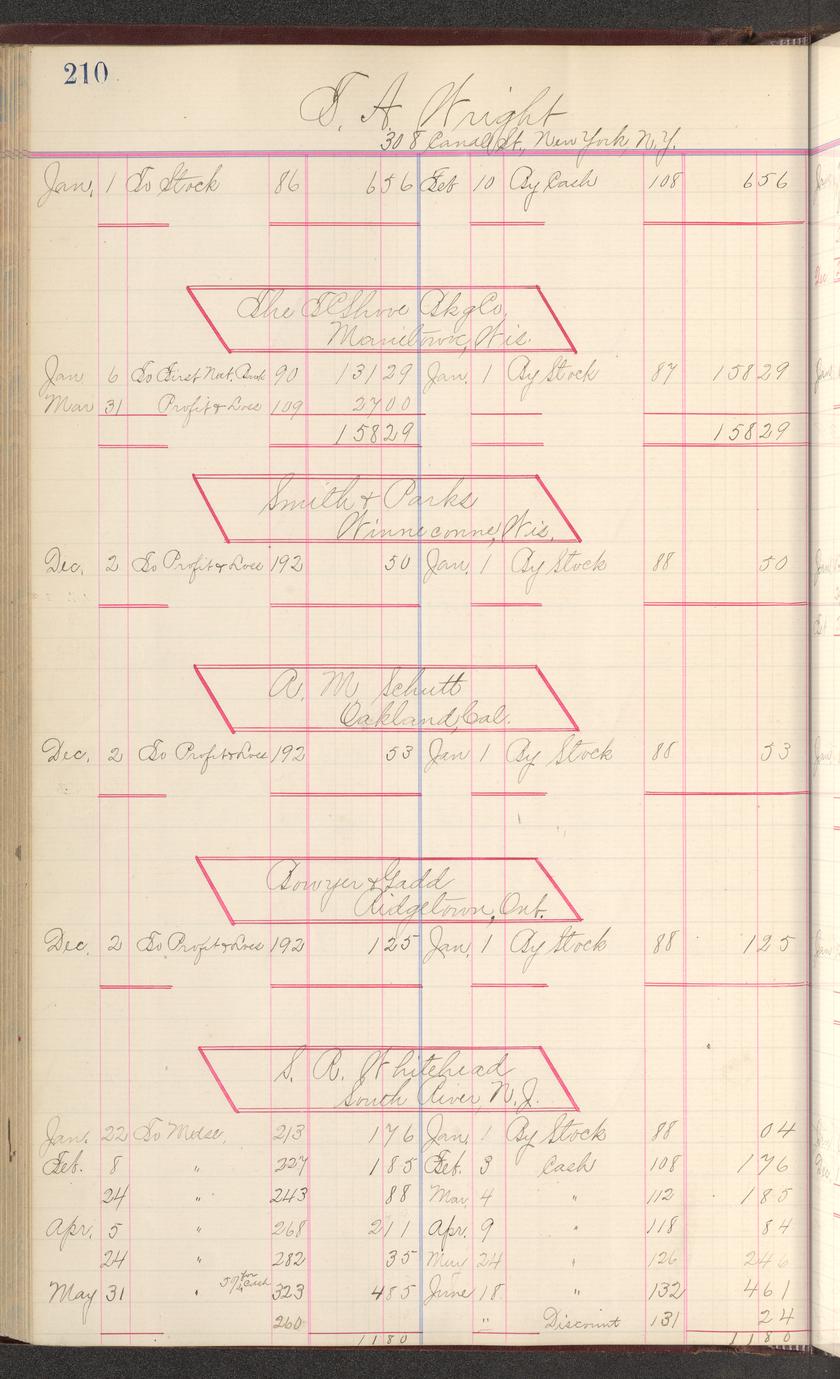 210
T. A. Wright
308 Canal St., New York, N.Y.
Jan. 1 To Stock 86 656 Feb 10 By Cash 108 656
The T C Shove Bkg Co.
Manitowoc, Wis.
Jan 6 To First Nat. Bank 90 13129 Jan. 1 By Stock 87 15829
Mar 31 Profit & Loss 109 2700
15829 15829
Smith & Parks
Winneconne, Wis.
Dec. 2 To Profit & Loss 192 50 Jan. 1 By Stock 88 50
A. M. Schutt
Oakland, Cal.
Dec. 2 To Profit & Loss 192 53 Jan 1 By Stock 88 53
Bowyer & Gadd
Ridgetown, Ont.
Dec. 2 To Profit & Loss 192 125 Jan. 1 By Stock 88 125
S. R. Whitehead
South River, N.J.
Jan. 22 To Mdse. 213 176 Jan. 1 By Stock 88 04
Feb. 8 " 227 185 Feb. 3 Cash 108 176
24 " 243 88 Mar. 4 " 112 185
Apr. 5 " 268 211 Apr. 9 " 118 84
24 " 282 35 24 " 126 246
May 31 " 5% for Cash 323 485 June 18 " 132 461
260 " Discount 131 24
1180 1180